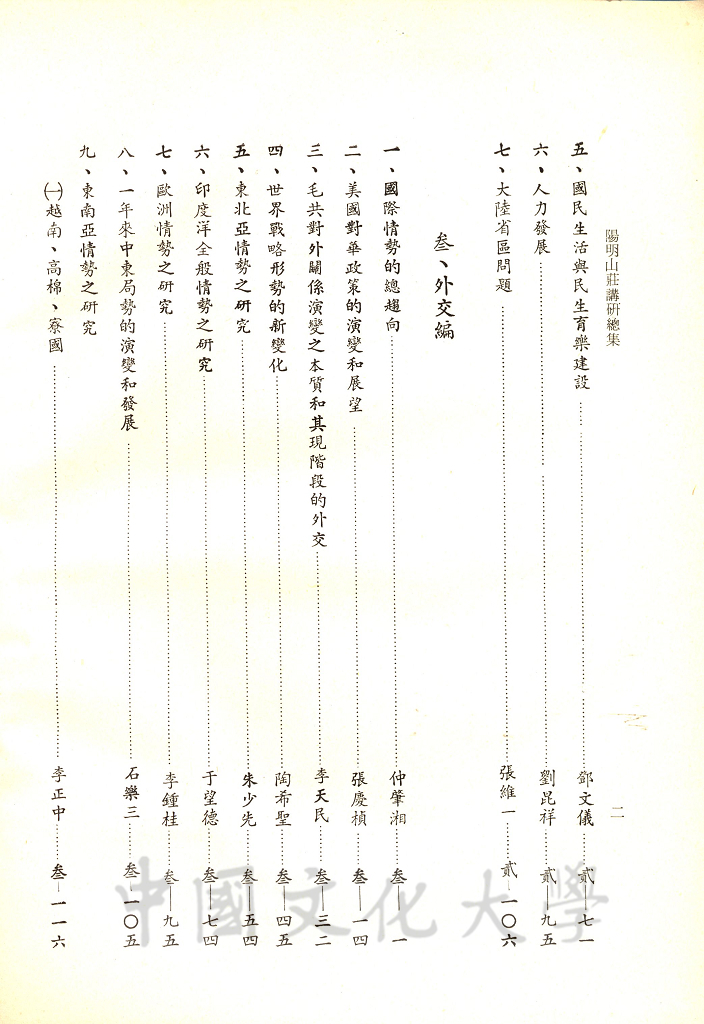 陽明山莊講研總集
二
五、國民生活與民生育樂建設……鄧文儀……貳—七一
六、人力發展……劉昆祥……貳—九五
七、大陸省區問題……張維一……貳—一〇六
叁、外交編
一、國際情勢的總趨向……仲肇湘……叁—一
二、美國對華政策的演變和展望……張慶楨……叁—一四
三、毛共對外關係演變之本質和其現階段的外交……李天民……叁—三二
四、世界戰略形勢的新變化……陶希聖……叁—四五
五、東北亞情勢之研究……朱少先……叁—五四
六、印度洋全般情勢之研究……于望德……叁—七四
七、歐洲情勢之研究……李鍾桂……叁—九五
八、一年來中東局勢的演變和發展……石樂三……叁—一〇五
九、東南亞情勢之研究
㈠越南、高棉、寮國……李正中……叁—一一六
中國文化大學